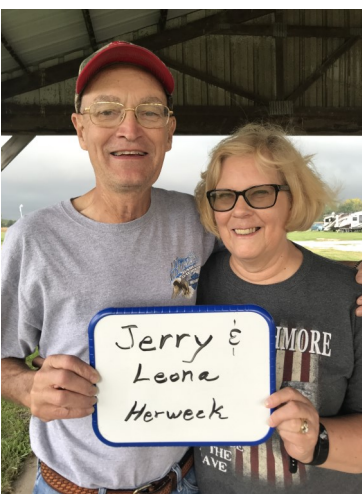 Jerry &
Leona
Herweck
MORE
THE
AVE